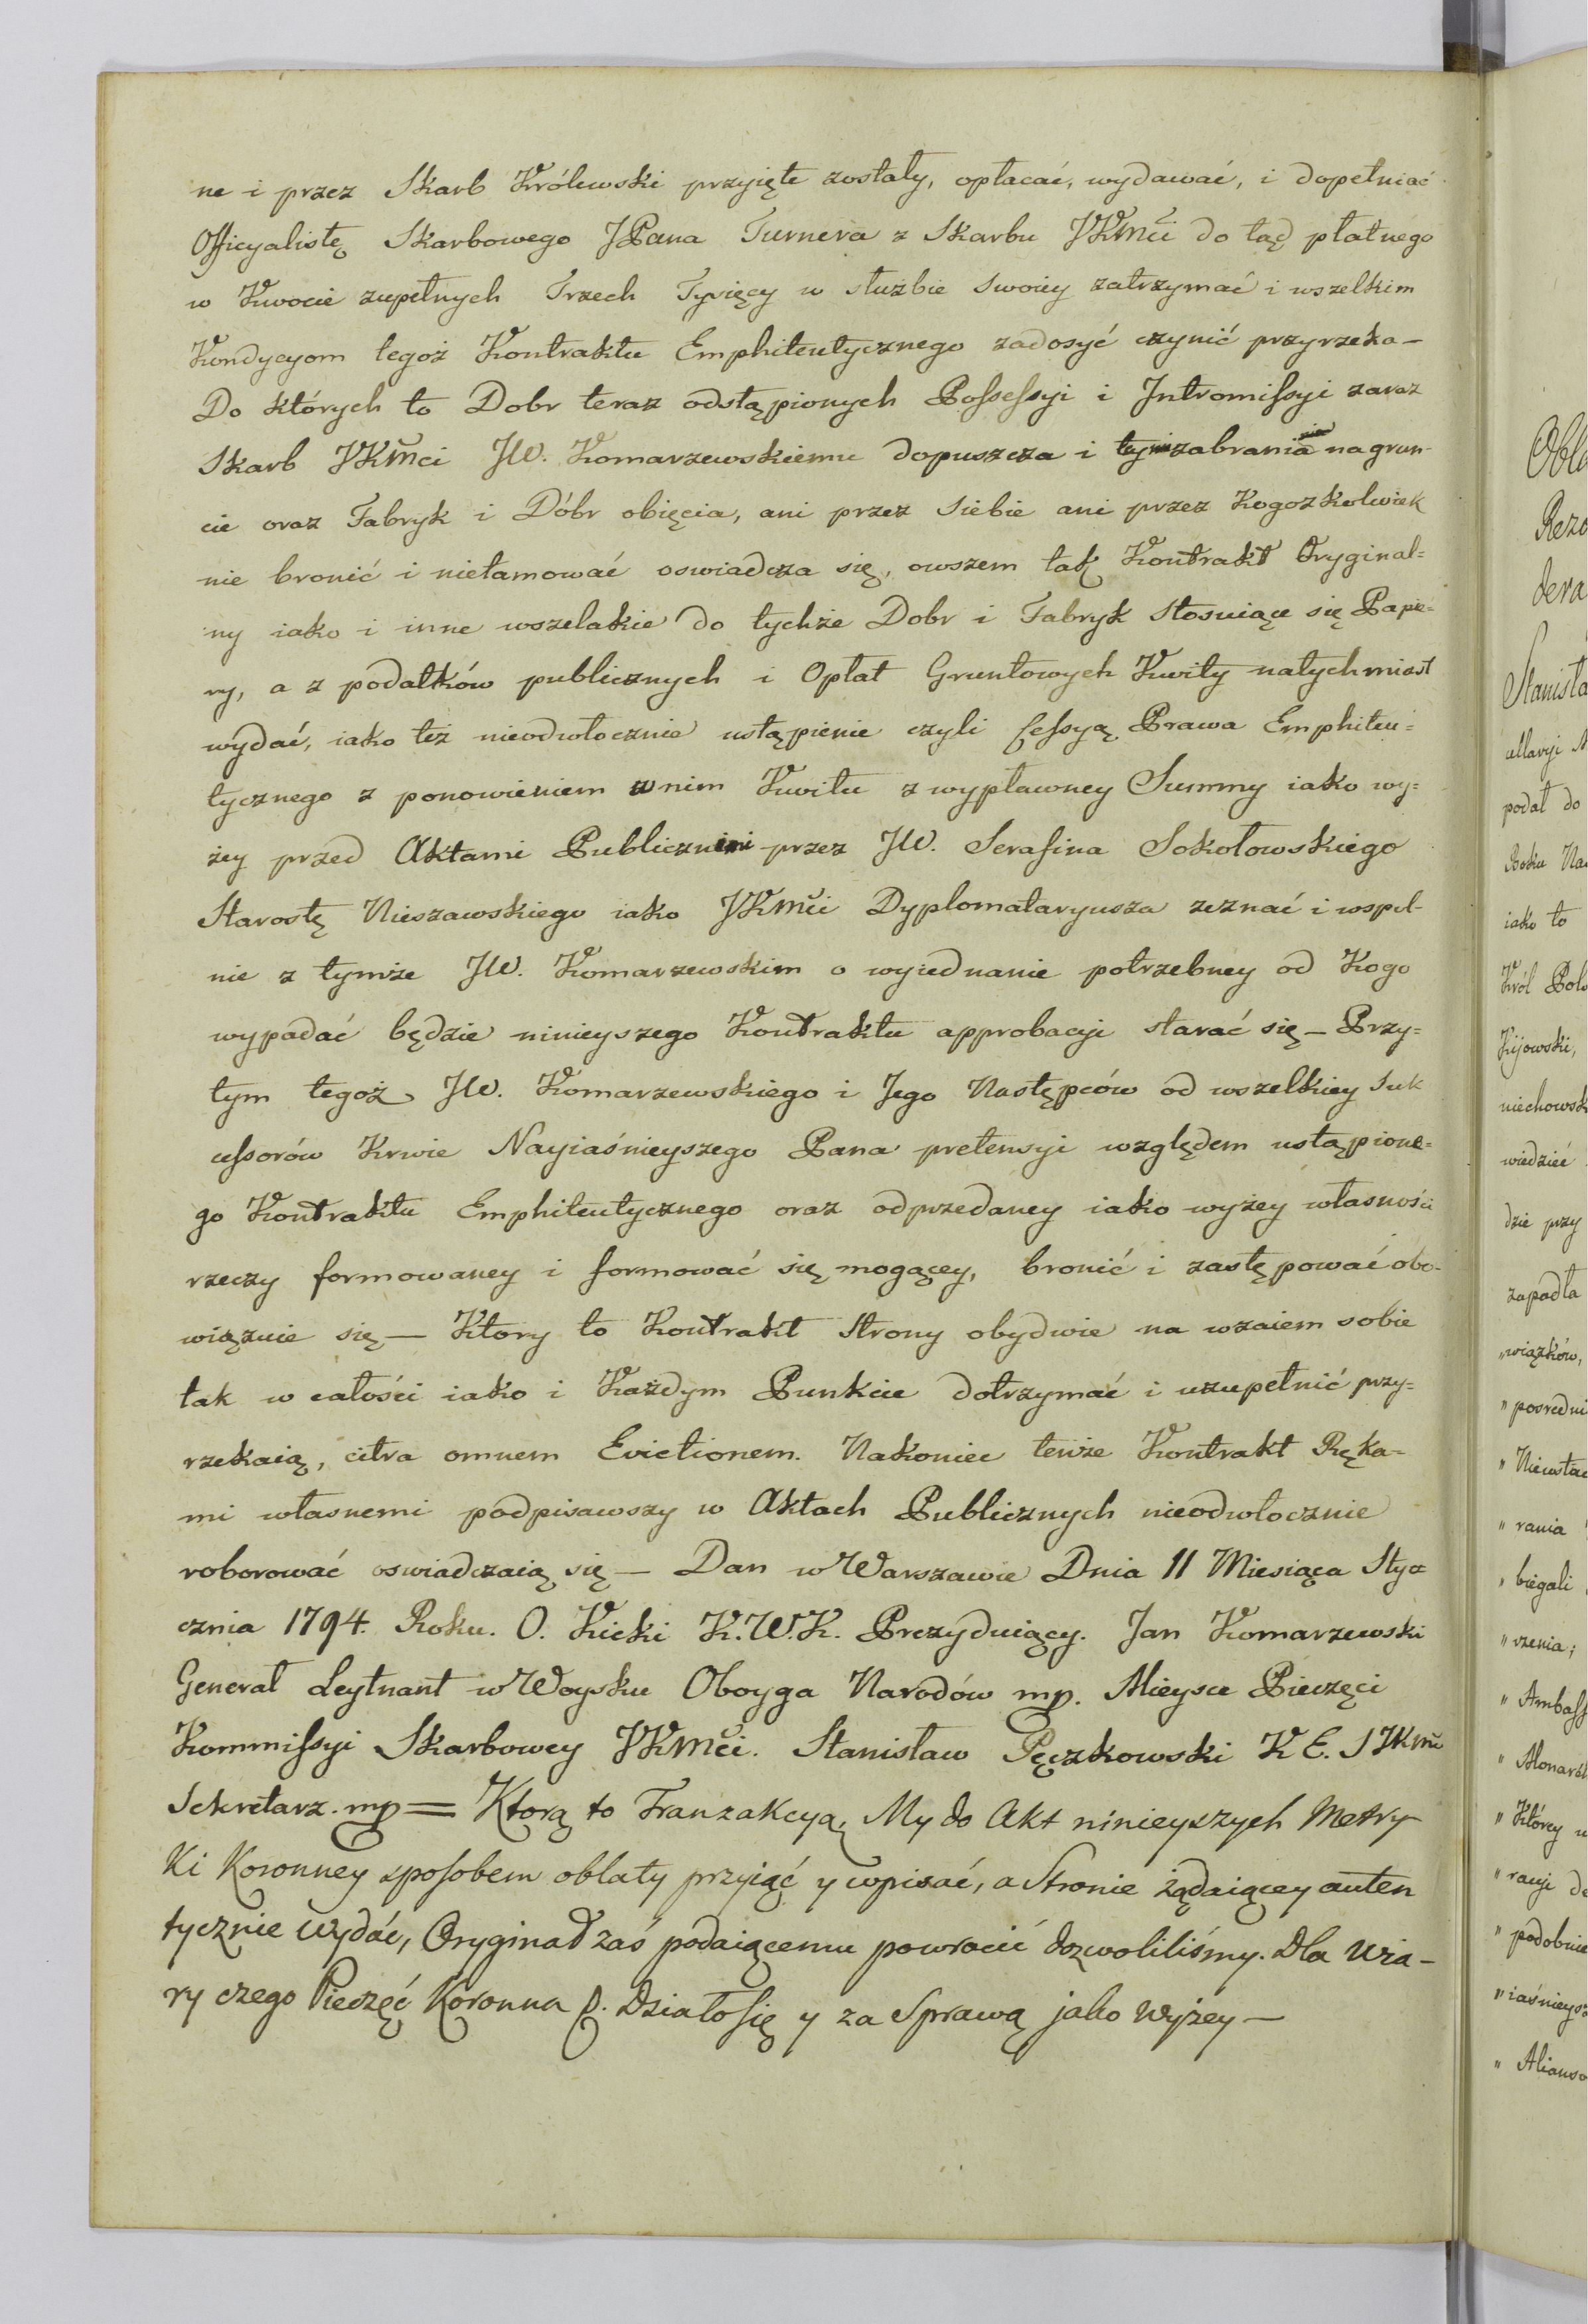 ne i przez Skarb Królewski przyięte zostały, opłacać, wydawać, i dopełniać
Officyalistę Skarbowego JPana Turnera z Skarbu JKMci do tąd płatnego
w Kwocie zupełnych Trzech Tysięcy w służbie swoiey zatrzymać i wszelkim
Kondycyom tegoż Kontraktu Emphiteutycznego zadosyć czynić przyrzeka —
Do których to Dobr teraz odstąpionych Possessyi i Intromissyi zaraz
Skarb JKMci JW. Komarzewskiemu dopuszcza i zabrania na grun-
cie oraz Fabryk i Dóbr obięcia, ani przez siebie ani przez Kogozkolwiek
nie bronić i nietamować oswiadcza się, owszem tak Kontrakt Oryginal=
ny iako i inne wszelakie do tychże Dobr i Fabryk stosuiące się Papie=
ry, a z podatków publicznych i Opłat Gruntowych Kwity natychmiast
wydać, iako też nieodwłocznie ustąpienie czyli Cessyą Prawa Emphiteu=
tycznego z ponowieniem w nim Kwitu z wypławney Summy iako wy=
żey przed Aktami Publicznemi przez JW. Serafina Sokołowskiego
Starostę Nieszawskiego iako JKMci Dyplomataryusza zeznać i wspol-
nie z tymże JW. Komarzewskim o wyiednanie potrzebney od Kogo
wypadać będzie ninieyszego Kontraktu approbacyi starać się — Przy=
tym tegoż JW. Komarzewskiego i Jego Następców od wszelkiey Suk
cessorów Krwie Nayiaśnieyszego Pana pretensyi względem ustąpione=
go Kontraktu Emphiteutycznego oraz odprzedaney iako wyżey własności
rzeczy formowaney i formować się mogącey, bronić i zastępować obo-
wiązuie się — Ktory to Kontrakt Strony obydwie na wzaiem sobie
tak w całości iako i Każdym Punkcie dotrzymać i uzupełnić przy=
rzekaią, citra omnem Evictionem. Nakoniec tenże Kontrakt Ręka-
mi własnemi podpisawszy w Aktach Publicznych nieodwłocznie
roborować oswiadczaią się — Dan w Warszawie Dnia 11 Miesiąca Sty=
cznia 1794. Roku. O. Kicki K.W.K. Prezyduiący. Jan Komarzewski
Generał Leytnant w Woysku Oboyga Narodów mp. Mieysce Pieczęci
Kommissyi Skarbowey JKMci. Stanisław Pęczkowski K E. S JKMci
Sekretarz. mp = Ktorą to Tranzakcyą, My do Akt ninieyszych Metry
Ki Koronney sposobem oblaty przyiąć y wpisać, a Stronie żądaiącey auten
tycznie wydać, Oryginał zaś podaiącemu powrocić dozwoliliśmy. Dla Wia-
ry czego Pieczęć Koronna p. Działo się y za Sprawą jako wyżey —
Stanisła
podał do
Roku Na
iako to
Król Pol
Kijowski,
niechowsk
wiedzieć
dzie przy
zapadła
„wiązków,
„ posredni
„ rania
„ biegali
„ Ambass
„ Monarch
„ Którey
„ podobnie
„ iaśnieysz
„ Alianso